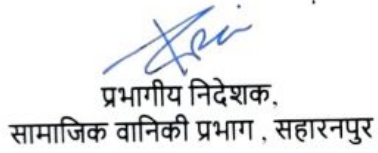 प्रभागीय निदेशक,
सामाजिक वानिकी प्रभाग , सहारनपुर